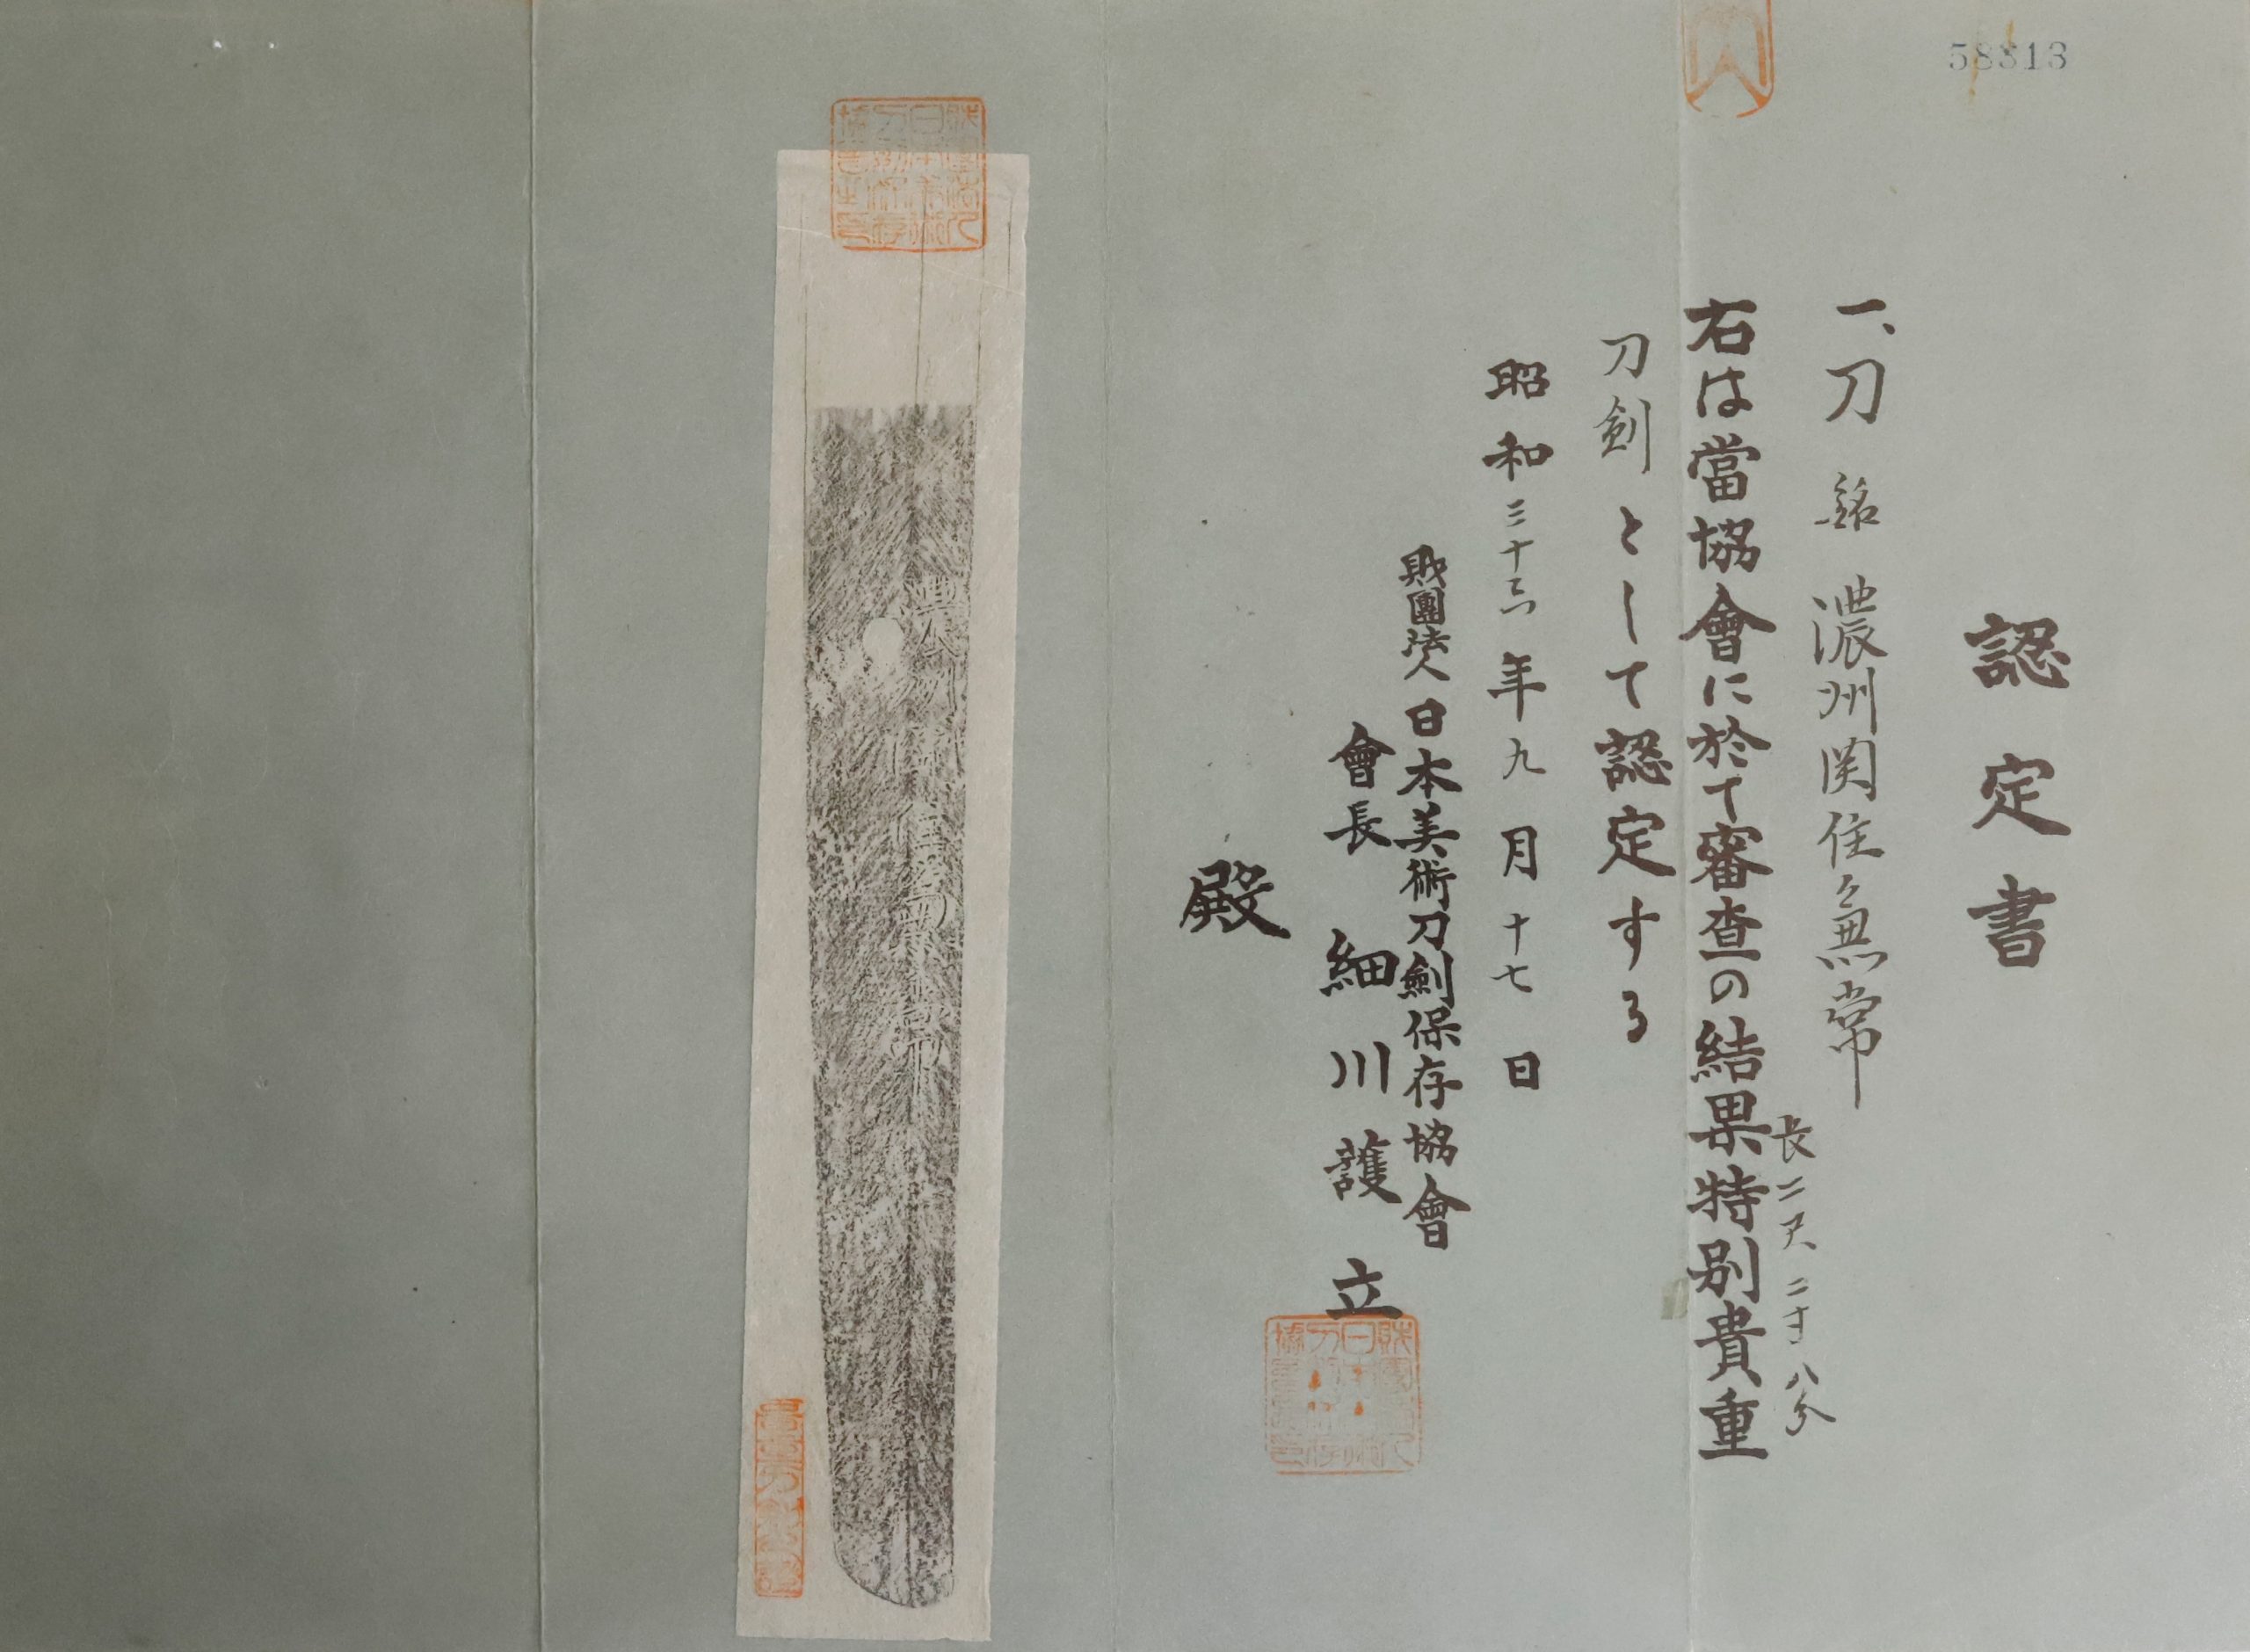 58813
認定書
一、刀 銘 濃州関住兼常
長二尺二寸八分
右は當協會に於て審査の結果特別貴重
刀劍として認定する
昭和三十三年九月十七日
財團法人日本美術刀劍保存協會
會長 細川護立
殿